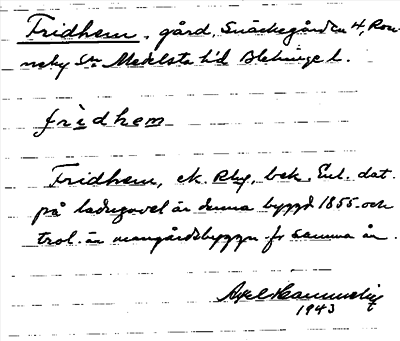 Fridhem, gård, Snäckegården 4, Ron-
neby Sn Medelsta hd Blekinge l.
fridhem
Fridhem, ek. Rby, bek. Enl. dat.
på ladugavel är denna byggd 1855 och
trol. är mangårdsbyggn. fr samma år.
Axel
1943